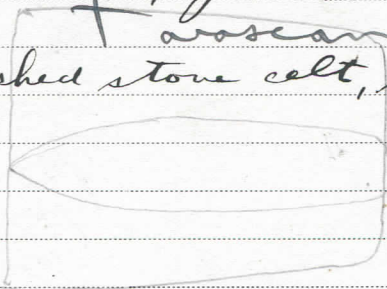 Tarascan
shed stone celt,